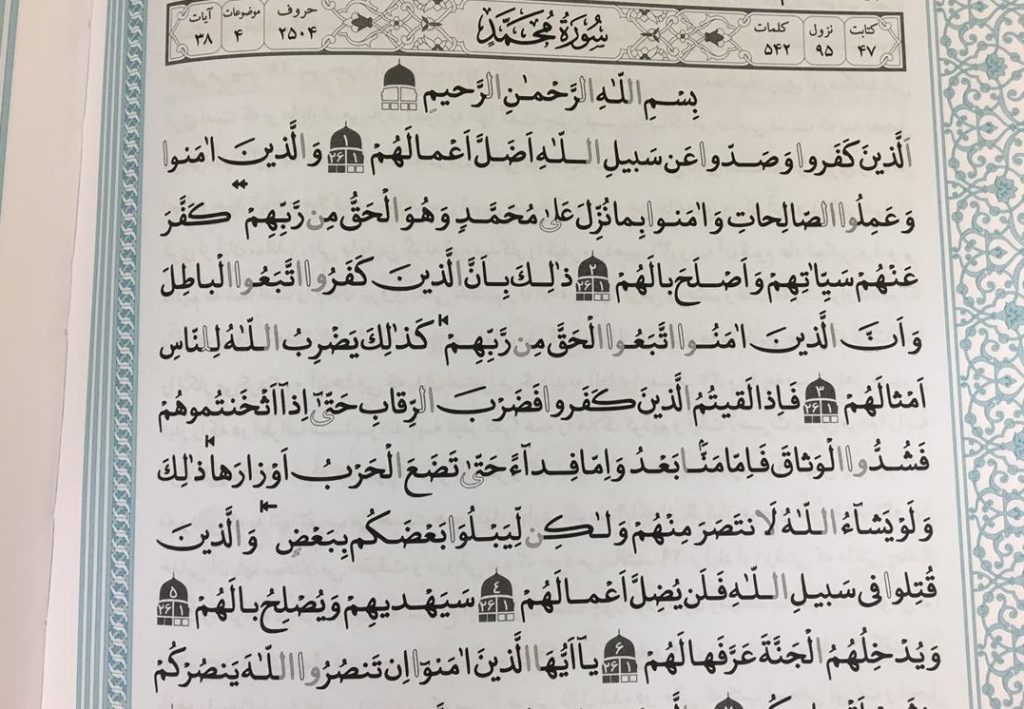 کتابت ۴۷ نزول ۹۵ کلمات ۵۴۲ سُورَةُ مُحَمَّدٍ حروف ۲۵۰۴ موضوعات ۴ آیات ۳۸
بِسْمِ اللّٰهِ الرَّحْمٰنِ الرَّحیمِ
اَلَّذینَ کَفَروا وَ صَدّوا عَن سَبیلِ اللّٰهِ اَضَلَّ اَعْمالَهُمْ ۱ وَ الَّذینَ اٰمَنوا
وَ عَمِلُوا الصّالِحاتِ وَ اٰمَنوا بِما نُزِّلَ عَلیٰ مُحَمَّدٍ وَ هُوَ الْحَقُّ مِن رَّبِّهِمْ کَفَّرَ
عَنْهُمْ سَیِّاٰتِهِمْ وَ اَصْلَحَ بالَهُمْ ۲ ذٰلِكَ بِاَنَّ الَّذینَ کَفَرُوا اتَّبَعُوا الْباطِلَ
وَ اَنَّ الَّذینَ اٰمَنُوا اتَّبَعُوا الْحَقَّ مِن رَّبِّهِمْ کَذٰلِكَ یَضْرِبُ اللّٰهُ لِلنّاسِ
اَمْثالَهُمْ ۳ فَاِذا لَقیتُمُ الَّذینَ کَفَروا فَضَرْبَ الرِّقابِ حَتّیٰٓ اِذآ اَثْخَنتُموهُمْ
فَشُدُّوا الْوَثاقَ فَاِمّا مَنًّا بَعْدُ وَ اِمّا فِدآءً حَتّیٰ تَضَعَ الْحَرْبُ اَوْزارَها ذٰلِكَ
وَ لَوْ یَشآءُ اللّٰهُ لَانتَصَرَ مِنْهُمْ وَ لٰکِن لِّیَبْلُوَا بَعْضَکُم بِبَعْضٍ وَ الَّذینَ
قُتِلوا فی سَبیلِ اللّٰهِ فَلَن یُضِلَّ اَعْمالَهُمْ ٤ سَیَهْدیهِمْ وَ یُصْلِحُ بالَهُمْ ۵
وَ یُدْخِلُهُمُ الْجَنَّةَ عَرَّفَها لَهُمْ ۶ یآ اَیُّهَا الَّذینَ اٰمَنوٓا اِن تَنصُرُوا اللّٰهَ یَنصُرْکُمْ